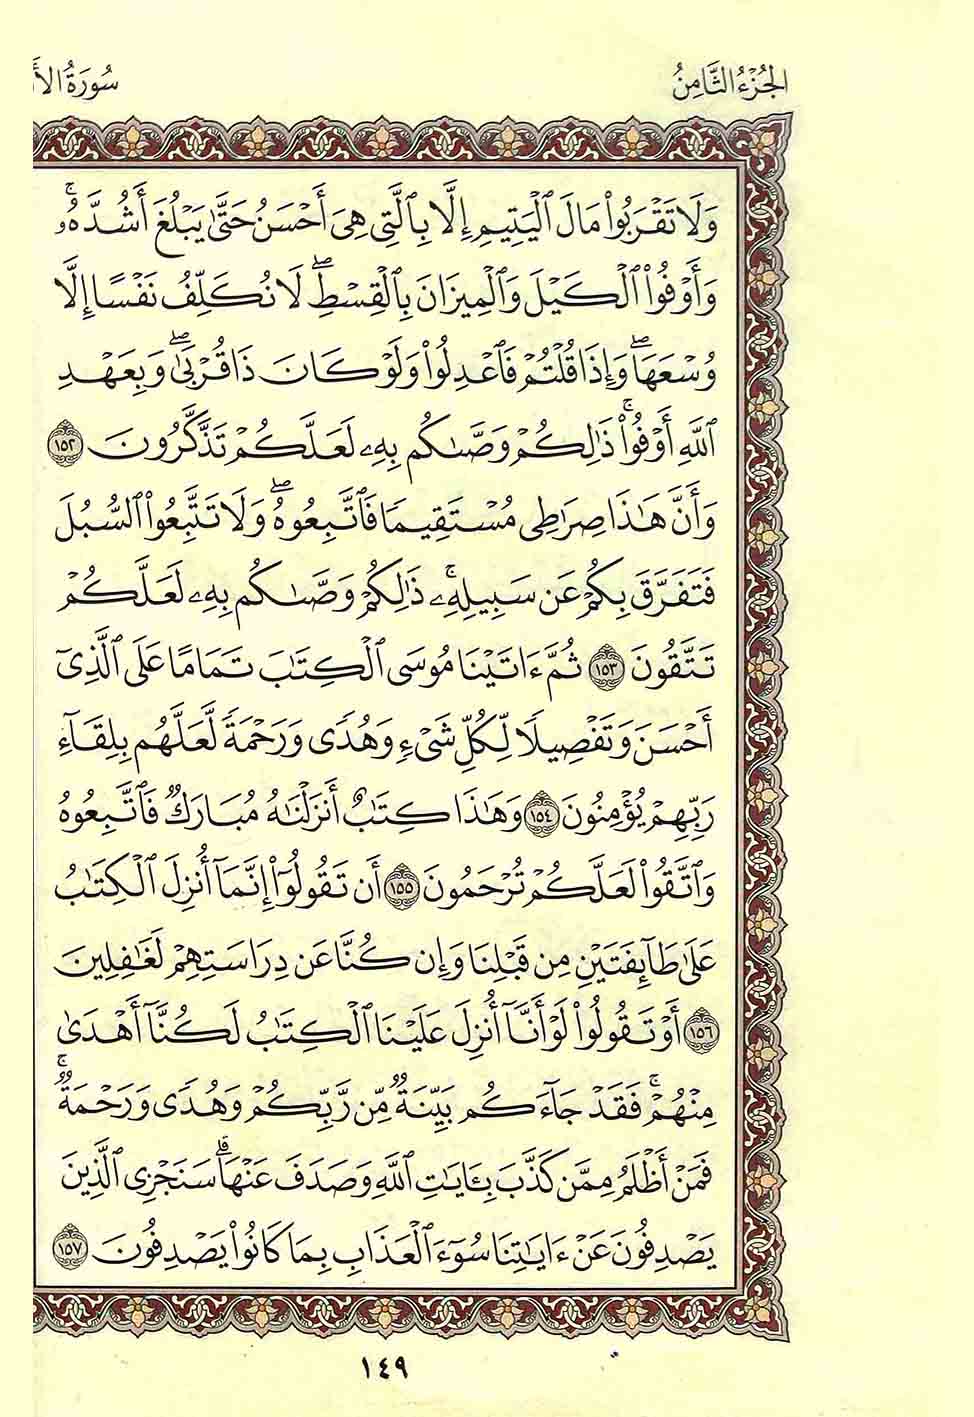 الجُزْءُ الثَّامِنُ
سُورَةُ الأَ
وَلَا تَقْرَبُوا۟ مَالَ ٱلْيَتِيمِ إِلَّا بِٱلَّتِى هِىَ أَحْسَنُ حَتَّىٰ يَبْلُغَ أَشُدَّهُۥۚ
وَأَوْفُوا۟ ٱلْكَيْلَ وَٱلْمِيزَانَ بِٱلْقِسْطِۖ لَا نُكَلِّفُ نَفْسًا إِلَّا
وُسْعَهَاۖ وَإِذَا قُلْتُمْ فَٱعْدِلُوا۟ وَلَوْ كَانَ ذَا قُرْبَىٰۖ وَبِعَهْدِ
ٱللَّهِ أَوْفُوا۟ۚ ذَٰلِكُمْ وَصَّىٰكُم بِهِۦ لَعَلَّكُمْ تَذَكَّرُونَ ١٥٢
وَأَنَّ هَٰذَا صِرَٰطِى مُسْتَقِيمًا فَٱتَّبِعُوهُۖ وَلَا تَتَّبِعُوا۟ ٱلسُّبُلَ
فَتَفَرَّقَ بِكُمْ عَن سَبِيلِهِۦۚ ذَٰلِكُمْ وَصَّىٰكُم بِهِۦ لَعَلَّكُمْ
تَتَّقُونَ ١٥٣ ثُمَّ ءَاتَيْنَا مُوسَى ٱلْكِتَٰبَ تَمَامًا عَلَى ٱلَّذِىٓ
أَحْسَنَ وَتَفْصِيلًا لِّكُلِّ شَىْءٍ وَهُدًى وَرَحْمَةً لَّعَلَّهُم بِلِقَآءِ
رَبِّهِمْ يُؤْمِنُونَ ١٥٤ وَهَٰذَا كِتَٰبٌ أَنزَلْنَٰهُ مُبَارَكٌ فَٱتَّبِعُوهُ
وَٱتَّقُوا۟ لَعَلَّكُمْ تُرْحَمُونَ ١٥٥ أَن تَقُولُوٓا۟ إِنَّمَآ أُنزِلَ ٱلْكِتَٰبُ
عَلَىٰ طَآئِفَتَيْنِ مِن قَبْلِنَا وَإِن كُنَّا عَن دِرَاسَتِهِمْ لَغَٰفِلِينَ
١٥٦ أَوْ تَقُولُوا۟ لَوْ أَنَّآ أُنزِلَ عَلَيْنَا ٱلْكِتَٰبُ لَكُنَّآ أَهْدَىٰ
مِنْهُمْۚ فَقَدْ جَآءَكُم بَيِّنَةٌ مِّن رَّبِّكُمْ وَهُدًى وَرَحْمَةٌۚ
فَمَنْ أَظْلَمُ مِمَّن كَذَّبَ بِـَٔايَٰتِ ٱللَّهِ وَصَدَفَ عَنْهَاۗ سَنَجْزِى ٱلَّذِينَ
يَصْدِفُونَ عَنْ ءَايَٰتِنَا سُوٓءَ ٱلْعَذَابِ بِمَا كَانُوا۟ يَصْدِفُونَ ١٥٧
١٤٩